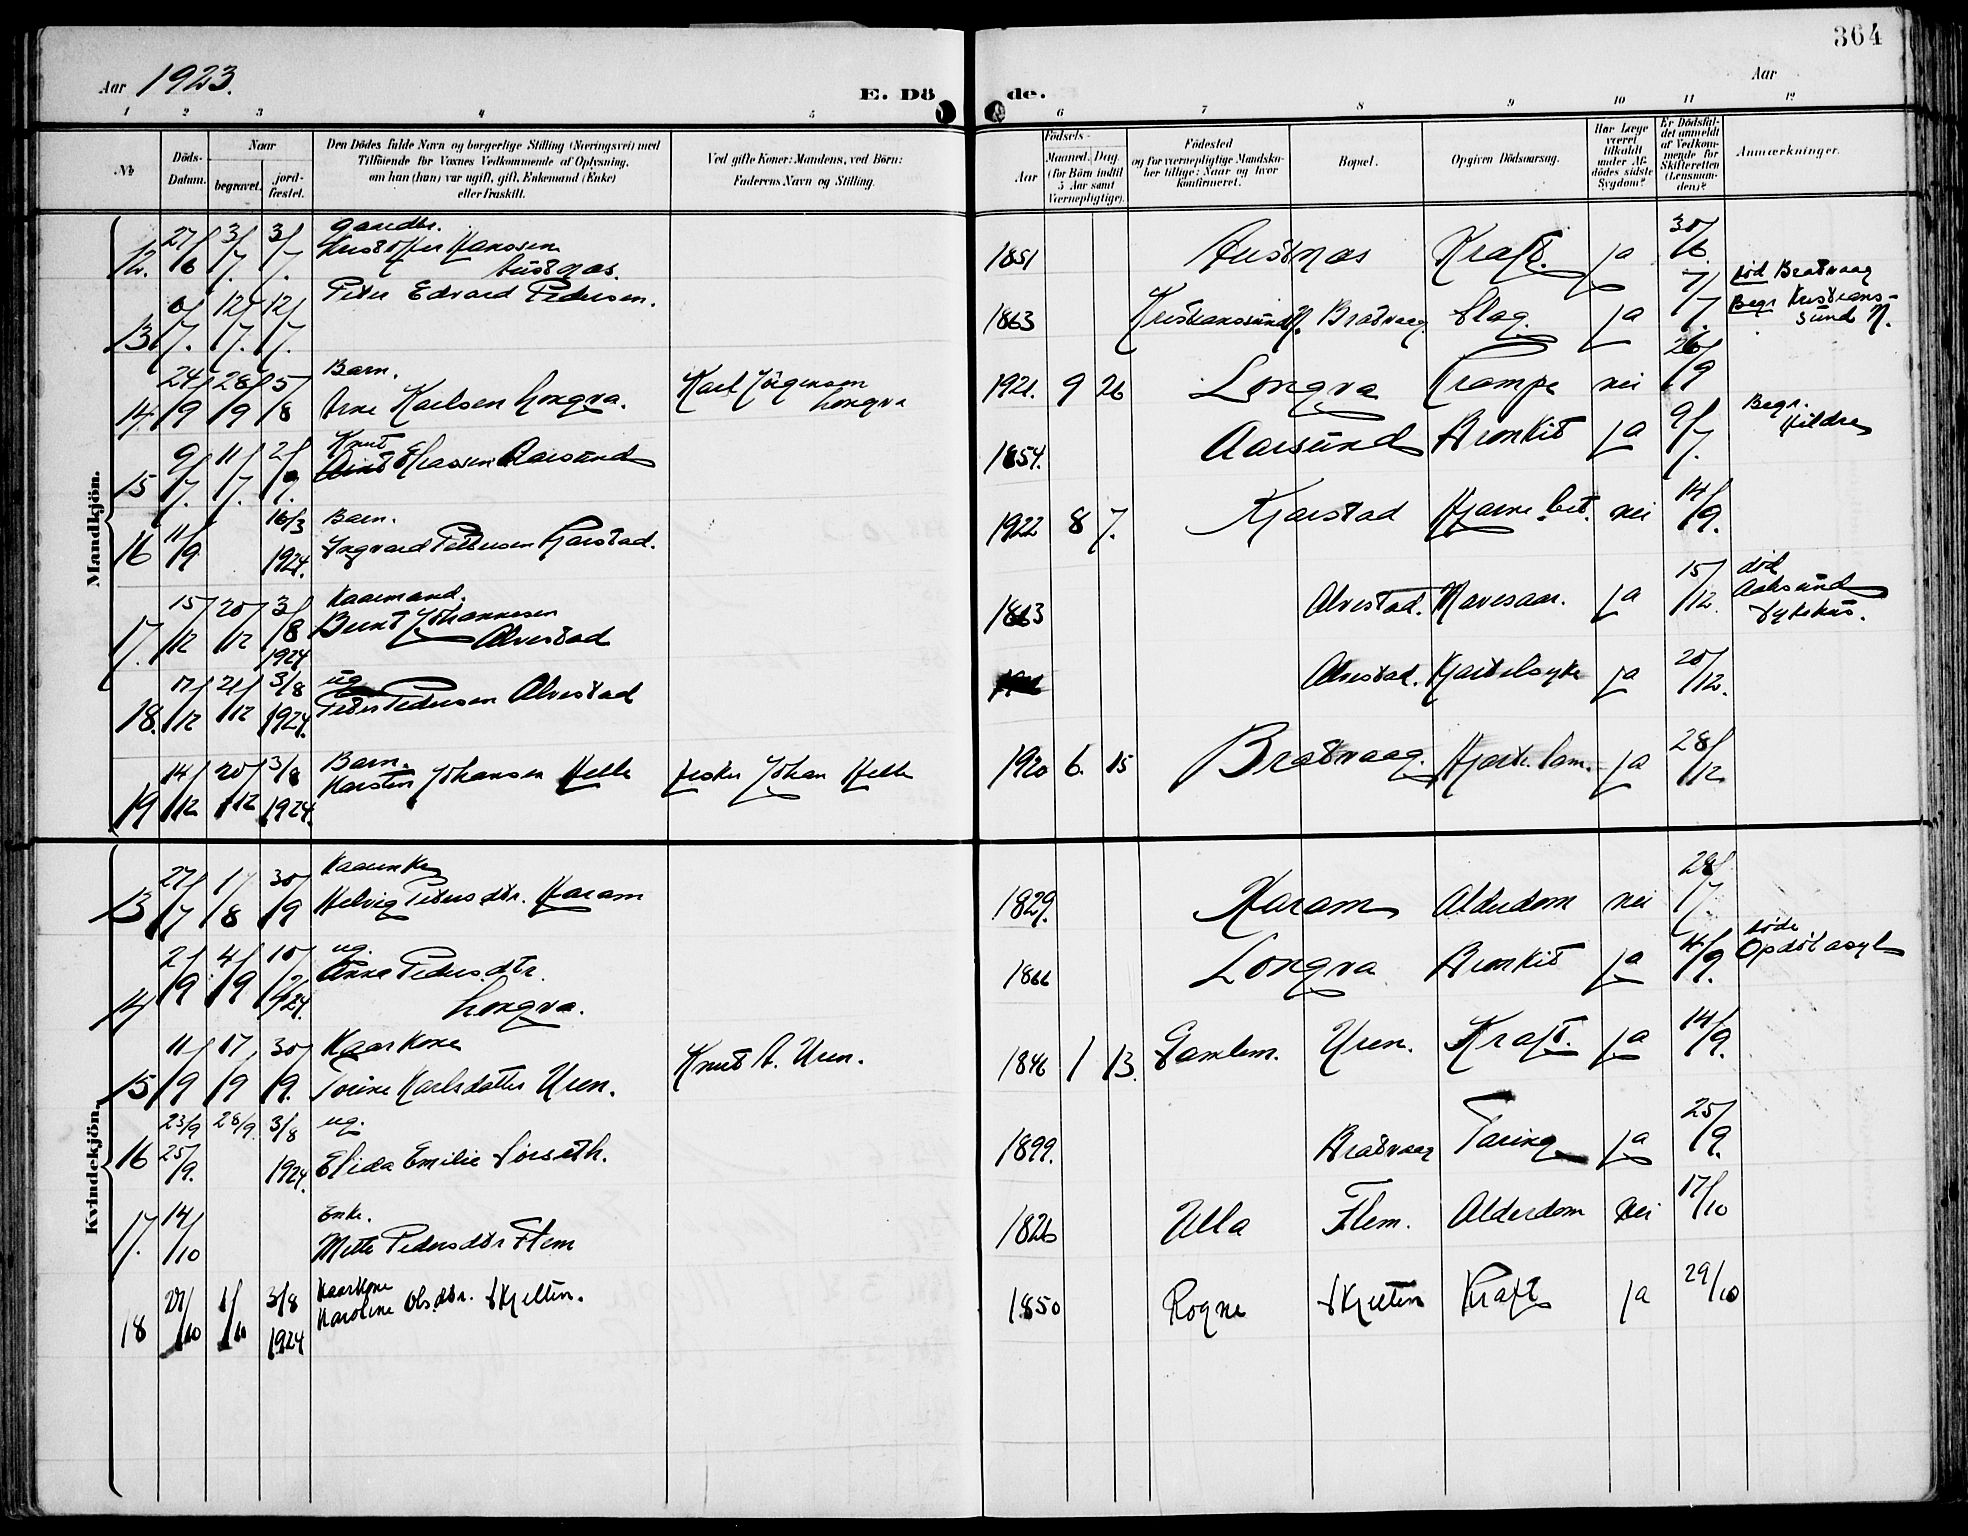 364
Aar 1923.
E. Dö de.
Aar
1 2 3 4 5 6 7 8 9 10 11 12
No
Döds-Datum.
Naar
begravet.
jordfæstet.
Den Dödes fulde Navn og borgerlige Stilling (Næringsvei) med
Tilföiende for Voxnes Vedkommende af Oplysning,
om han (hun) var ugift, gift, Enkemand (Enke)
eller fraskilt.
Ved gifte Koner: Mandens, ved Börn:
Faderens Navn og Stilling.
Födsels-
Aar
Maaned. Dag
(for Börn indtil
5 Aar samt
Værnepligtige).
Födested
og for værnepligtige Mandskaber
tillige: Naar og hvor
konfirmeret.
Bopæl.
Opgiven Dödsaarsag.
Har Læge
været
tilkaldt
under Afdödes
sidste
Sygdom?
Er Dödsfaldet
anmeldt
af Vedkommende
for
Skifteretten
(Lensmanden)?
Anmærkninger.
Mandkjön.
12. 27/6 3/7. 3/7. Gaardbr. Kristoffer Hanssen Austnes. 1851 Austnes Kræft. ja 30/6.
13 12/7. 12/7. Peter Edvard Pedersen. 1863 Kristiansund N. Bratvaag Slag. ja 7/7. død Bratvaag
Begr Kristianssund N.
14 24/9 28/9 5/8 Barn. Arne Karlsen Longva. Karl Jørgensen Longva 1921. 9 26 Longva Krampe nei 26/9
15 9/7. 11/7. 2/9. Knut Aarsund 1854. Aarsund Bronkit ja 9/7. Begr. Hildre
16 11/9 16/3 1924. Barn. Ingvard Pettersen Kjærstad. 1922 8 7. Kjærstad Hjerne bet. nei 14/9.
17. 15/12 20/12 3/8 1924 Kaarmand. Bernt Johannesen Alvestad 1863 Alvestad. ja 15/12. død
Aalesund
Sykehus.
18. 17/12 21/12 3/8 1924. ug Peder Pedersen Alvestad Alvestad. Hjertesyke ja 20/12.
19 14/12 20/12 3/8 1924. Barn. Karsten Johansen Helle Fisker Johan Helle 1920 6. 15 Bratvaag. Hjerte lam. ja 28/12
Kvindekjön.
13 27/7 1/8 30/9 Kaarenke Helvig Petersdtr. Haram 1829. Haram Alderdom nei 28/7
14 2/9 4/9 ug. Anna Pedersdtr. Longva. 1866 Longva Bronkit ja 4/9. døde
Opdøl asyl
15 11/9 17/9 30/9. Kaarkone Torine Karlsdatter Uren. Knut A. Uren. 1846 1 13. Gamlem. Uren. Kræft. ja 14/9.
16 23/9 28/9. 3/8 1924. ug. Elida Emilie Sørseth. 25/9. 1899. Bratvaag Tæring ja 25/9.
17. 14/10 Enke. Mette Pedersdtr Flem 1826 Ulla Flem. Alderdom nei 17/10
18 1/10 3/8 1924 Kaarkone Karoline Olsdtr. Skjelten. 1850 Rogne Skjelten Kræft ja 29/10